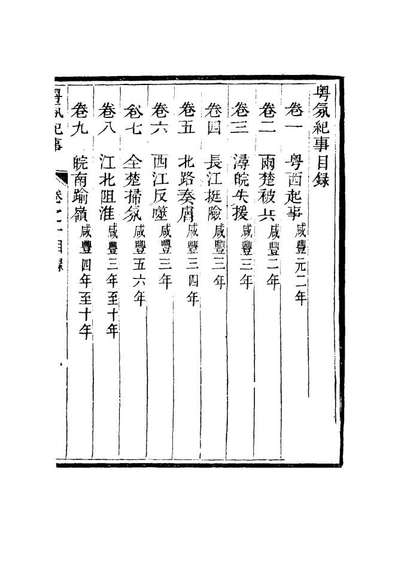 粤氛紀事目録
卷一 粤西起事咸豐元二年
卷二 兩楚被兵咸豐二年
卷三 潯皖失援咸豐三年
卷四 長江挺險咸豐三年
卷五 北路奏膚咸豐三四年
卷六 西江反噬咸豐三年
卷七 全楚掃氛咸豐五六年
卷八 江北阻淮咸豐三年至十年
卷九 皖南踰嶺咸豐四年至十年
粤氛紀事 目録